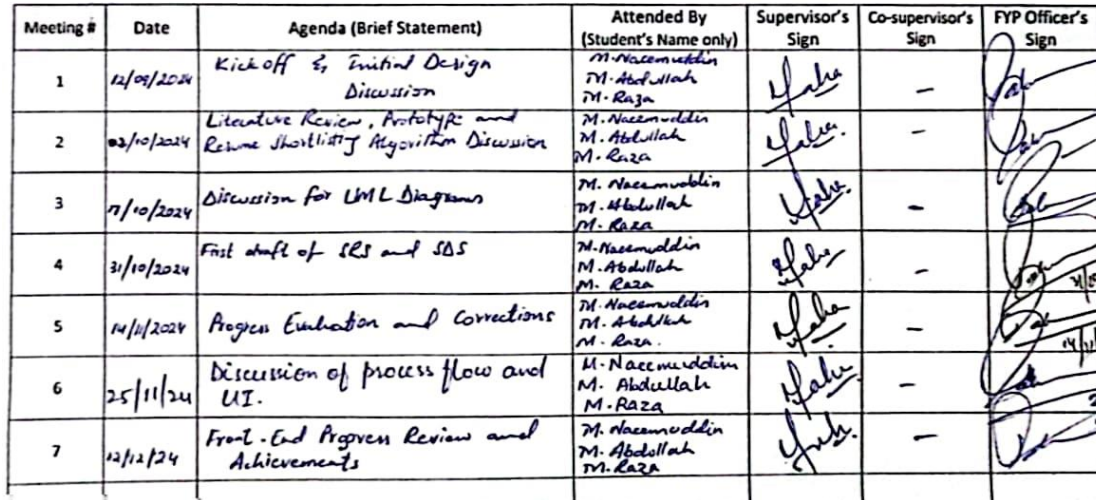 Meeting # Date Agenda (Brief Statement) Attended By (Student's Name only) Supervisor's Sign Co-supervisor's Sign FYP Officer's Sign
1 12/09/2024 Kick off & Initial Design
Discussion
M. Naeemuddin
M. Abdullah
M. Raza
Maha
-
2 03/10/2024 Literature Review, Prototype and
Resume Shortlisting Algorithm Discussion
M. Naeemuddin
M. Abdullah
M. Raza
Maha
-
3 17/10/2024 Discussion for UML Diagrams
M. Naeemuddin
M. Abdullah
M. Raza
Maha
-
4 31/10/2024 First draft of SRS and SDS
M. Naeemuddin
M. Abdullah
M. Raza
Maha
-
5 14/11/2024 Progress Evaluation and Corrections
M. Naeemuddin
M. Abdullah
M. Raza.
Maha
-
6 25/11/24 Discussion of process flow and
UI.
M. Naeemuddin
M. Abdullah
M. RAZA
Maha
-
7 12/12/24 Front-End Progress Review and
Achievements
M. Naeemuddin
M. Abdullah
M. Raza
-